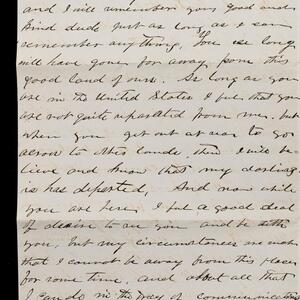 and I will remember your good and
kind deeds just as long as I can
remember anything. You ere long
will have gone far away from this
good land of ours. So long as you
are in the United States I feel that you
are not quite separated from me, but
when you get out at sea to go
across to other lands, then I will be
lieve and know that my darling
is has departed, And now while
you are here I feel a good deal
of desire to see you and be with
you, but my circumstances are such
that I cannot be away from this place
for some time, and about all that
I can do in the way of communicating